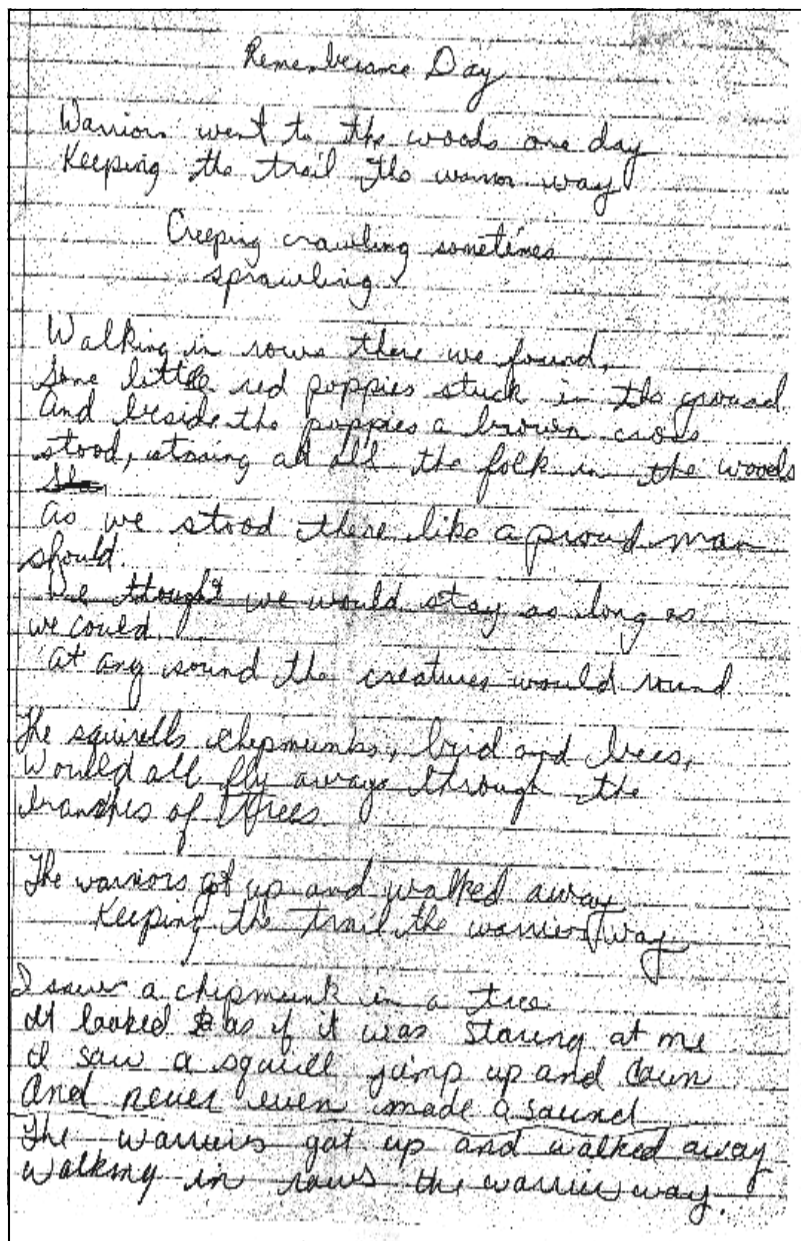 Rememberance Day
Warriors went to the woods one day
Keeping the trail the warrior way
Creeping crawling sometimes
sprawling.
Walking in rows there we found,
some little red poppies stuck in the ground
and beside the poppies a brown cross
stood, staring at all the folk in the woods
as we stood there like a proud man
should.
We thought we would stay as long as
we could.
at any sound the creatures would round
The squirells chepmunks, brid and bees,
Would all fly aways through the
branches of trees
The warriors got up and walked away
Keeping the trail the warrior way
I saw a chipmunk in a tree
It looked as if it was staring at me
I saw a squirell jump up and down
And never even made a sound
The warriers got up and walked away
walking in rows the warrier way.